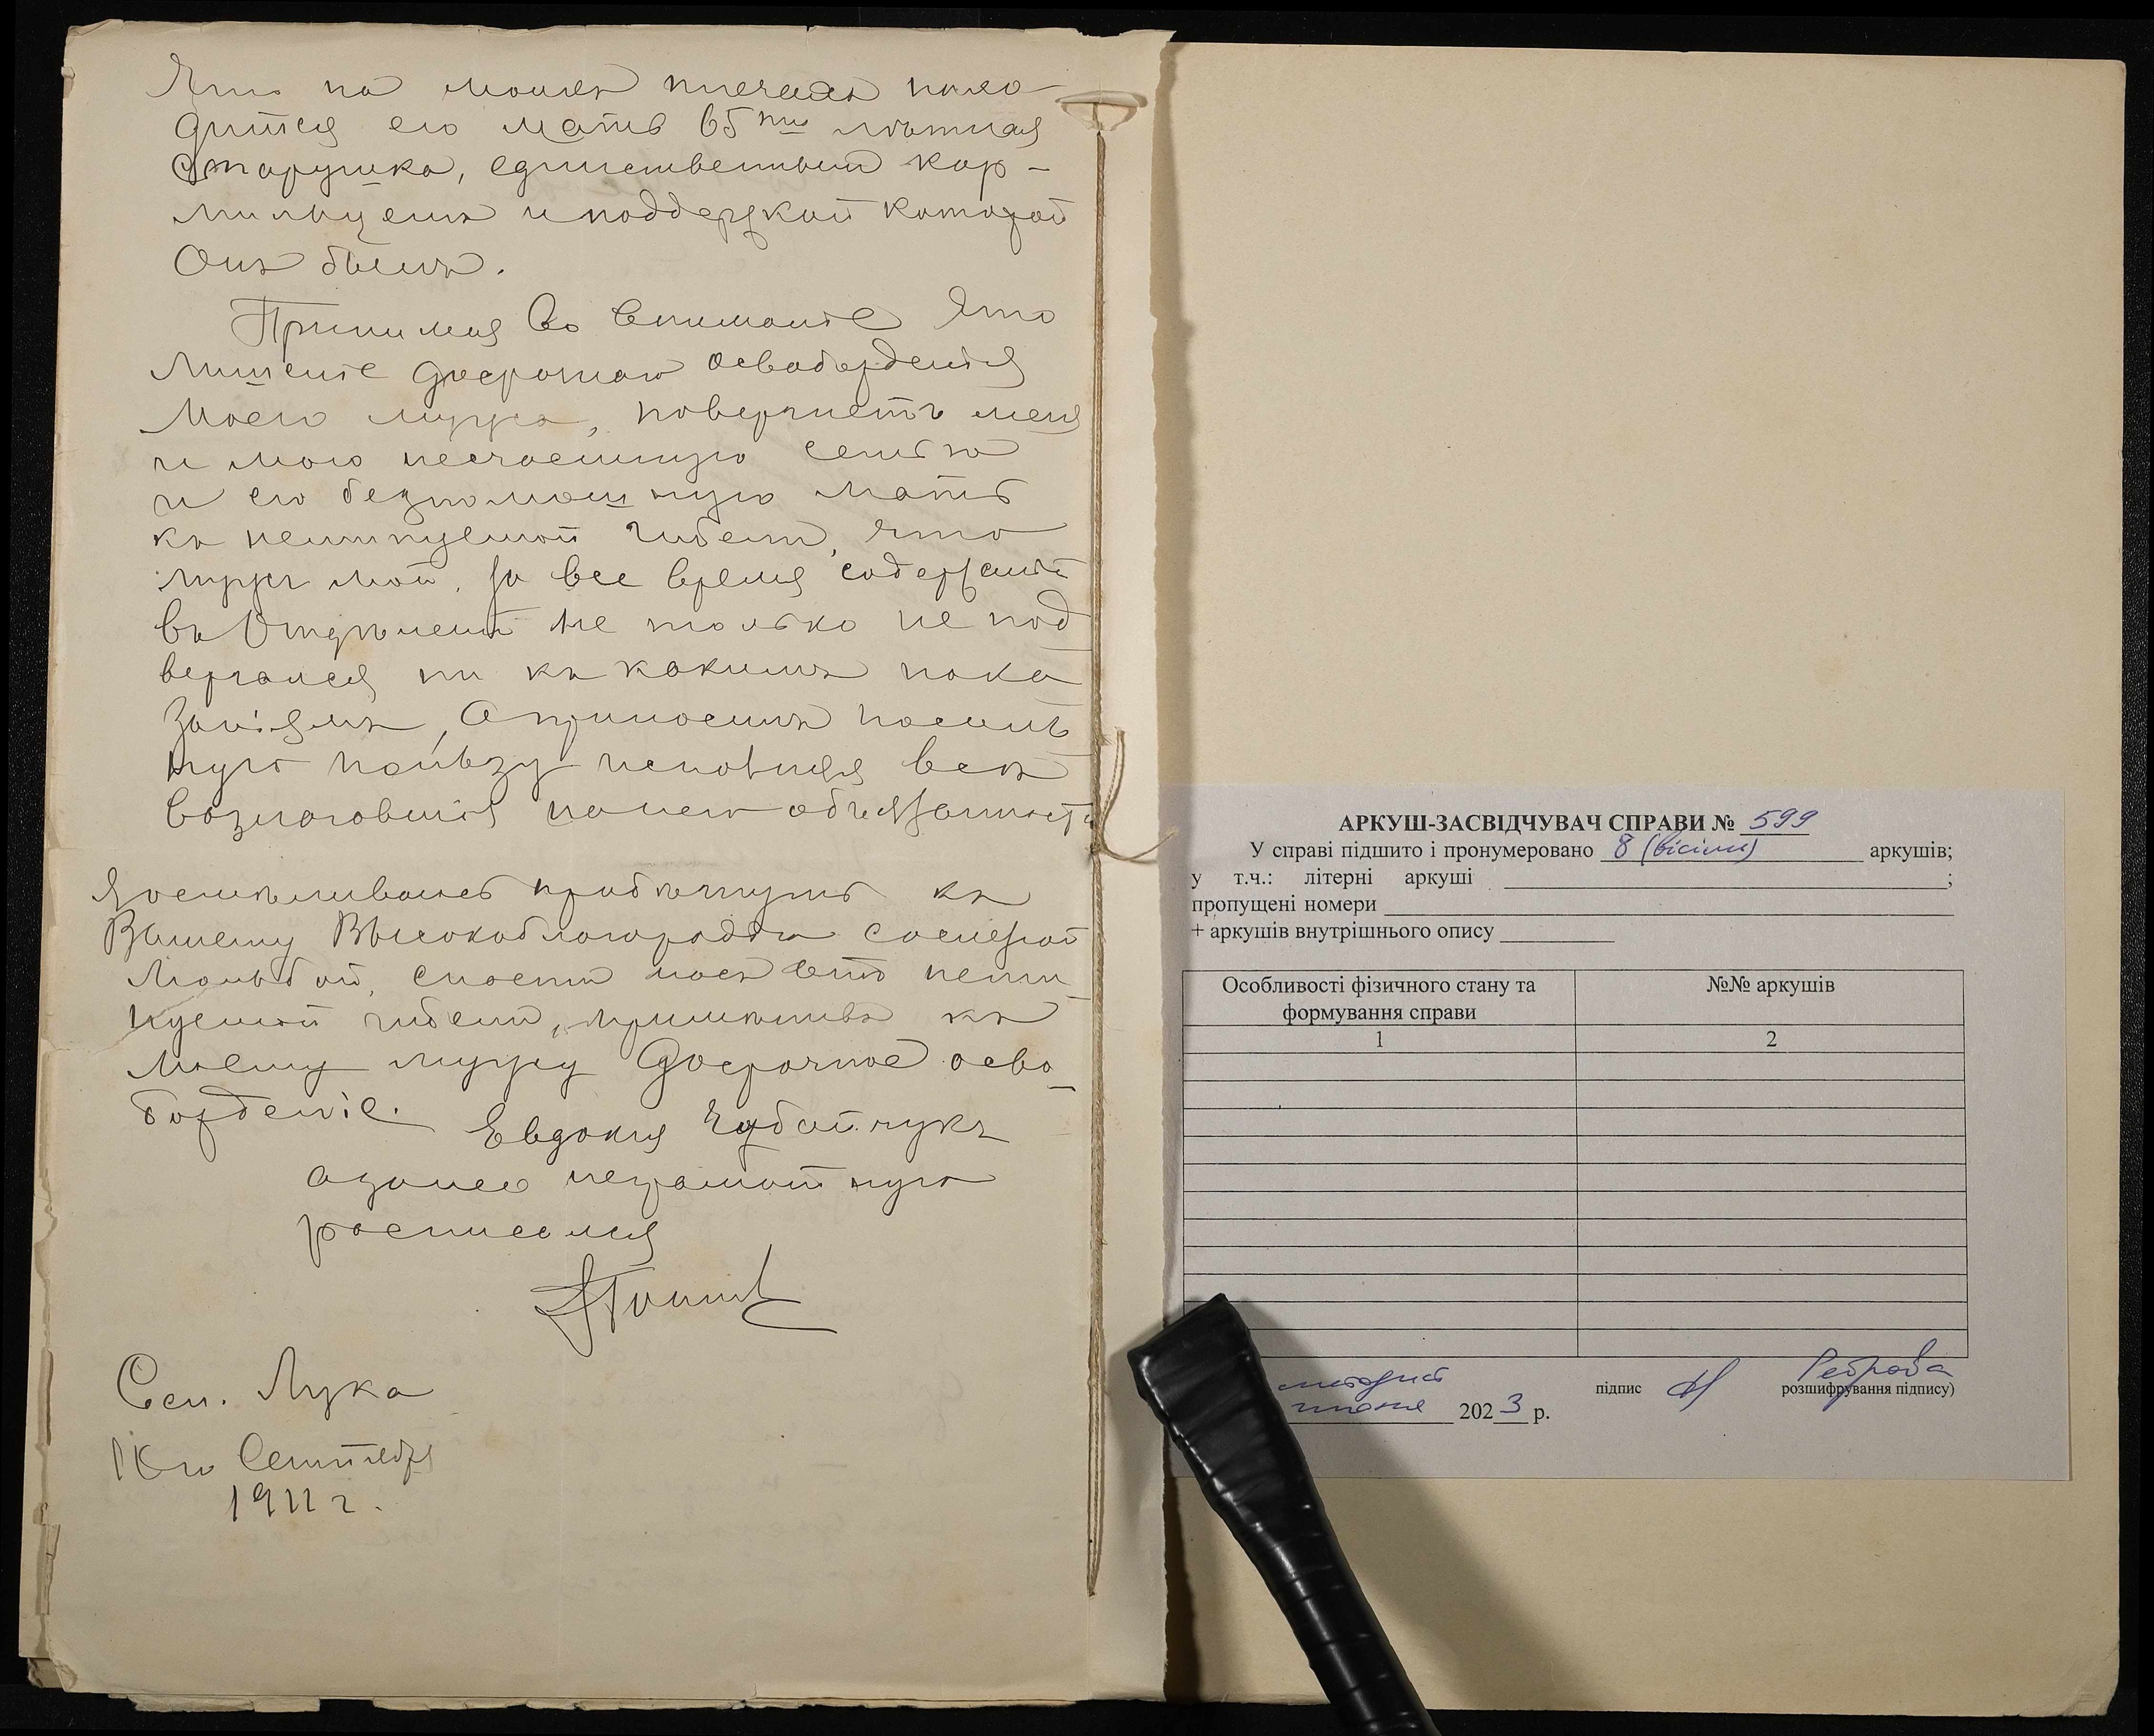 Что на моихъ плечахъ нахо-
дится его мать 65ти лѣтная
Старушка, единственный кор-
мильцемъ и поддержкой которой
Онъ былъ.
Принимая Во Вниманіе Что
Лишеніе досрочного освобожденія
Моего мужа, повергнетъ меня
и мою несчастную семью
и его безпомощную мать
къ неминуемой гибели, что
мужъ мой, за все время содержанія
въ Отдѣленіи не только не под
вергался ни къ какимъ нака
Заніямъ, а приносилъ посиль
ную пользу исполняя всѣ
Возлагавшіяся на него обязанности
Я осмѣливаюсь прибѣгнуть къ
Вашему Высокоблагородію со слезной
Мольбой, спасти насъ отъ неми
нуемой гибели, примѣнивъ къ
Моему мужу Досрочное осво-
божденіе.
Евдокия Чубайчукъ
а за нее неграмотную
росписался
Сел. Лука
Сентября
1911 г.
АРКУШ-ЗАСВІДЧУВАЧ СПРАВИ № 599
У справі підшито і пронумеровано 8 (вісім) аркушів;
у т.ч.: літерні аркуші ;
пропущені номери
+ аркушів внутрішнього опису
Особливості фізичного стану та формування справи №№ аркушів
1 2
методист підпис Реброва
розшифрування підпису)
2023 р.